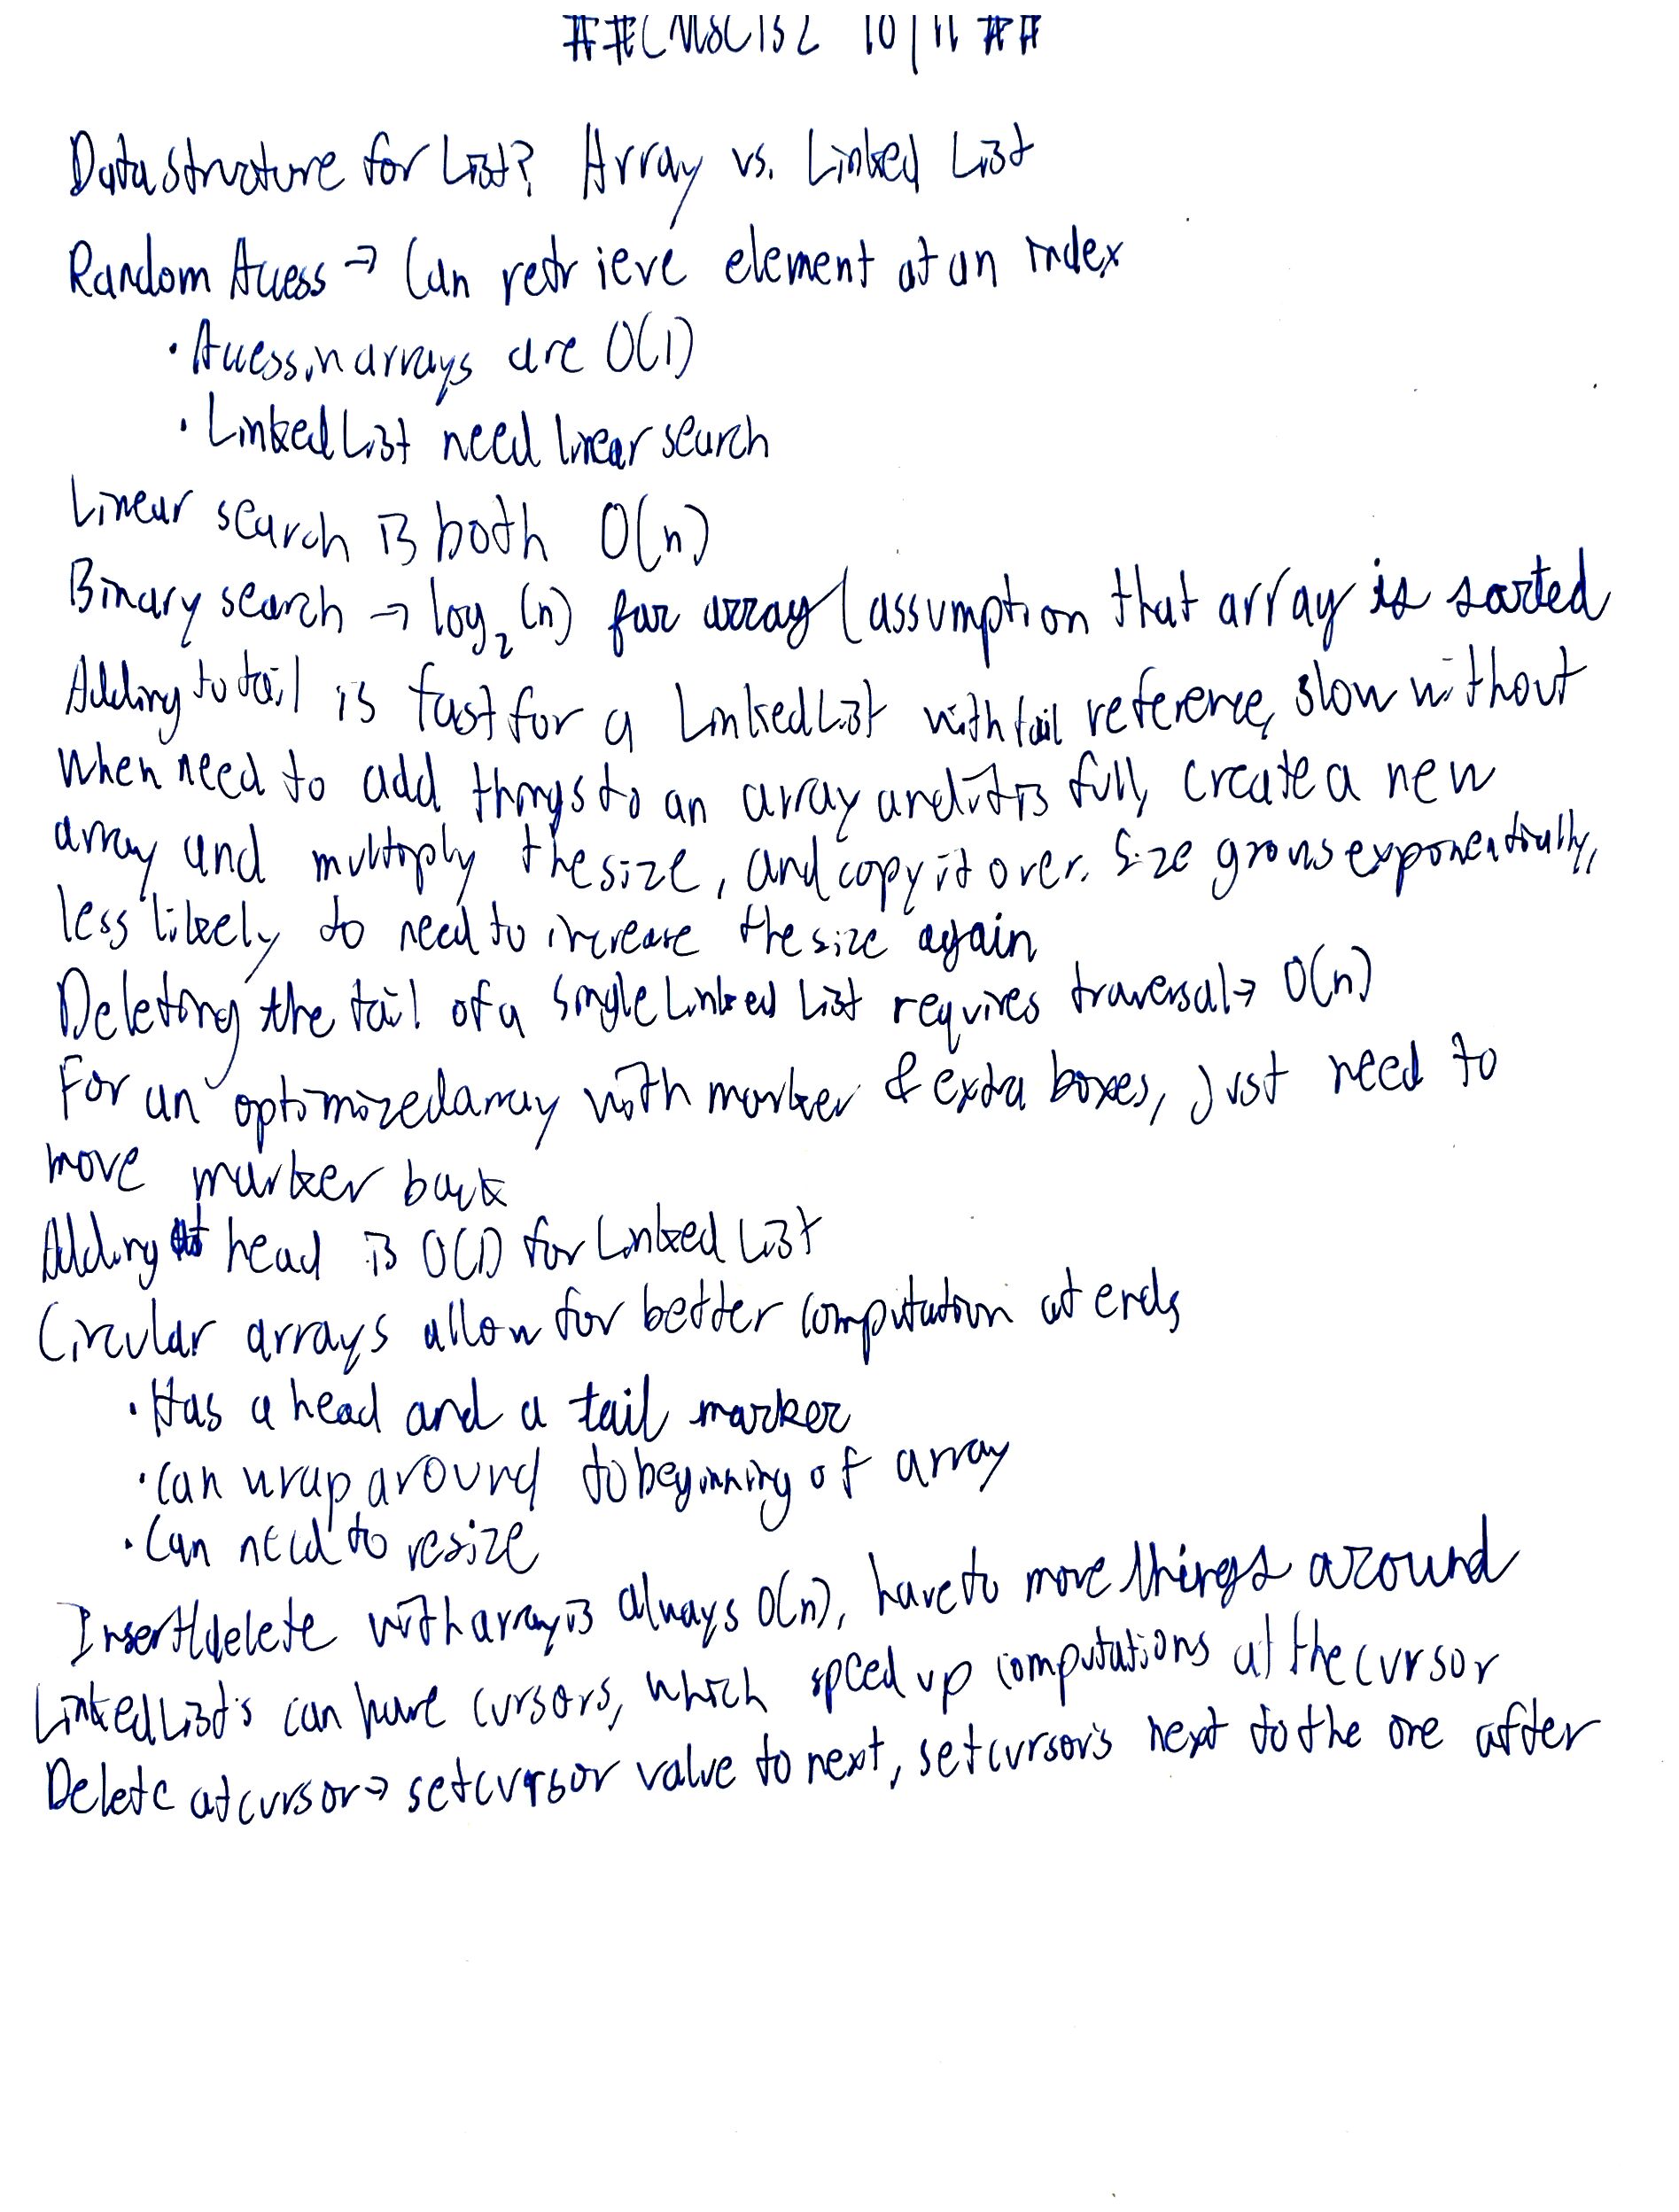 ##CMSC132 10/11##
Data structure for List? Array vs. Linked List
Random Access → Can retrieve element at an index
· Access in arrays are O(1)
· Linked List need linear search
Linear search is both O(n)
Binary search → log₂(n) for array (assumption that array is sorted
Adding to tail is fast for a Linked List with tail reference, slow without
When need to add things to an array and it is full, create a new
array and multiply the size, and copy it over. Size grows exponentially,
less likely to need to increase the size again
Deleting the tail of a Single Linked List requires traversal → O(n)
For an optimized array with marker & extra boxes, just need to
move marker back
Adding at head is O(1) for Linked List
Circular arrays allow for better computation at ends
· Has a head and a tail marker
· Can wrap around to beginning of array
· Can need to resize
Insert/delete with array is always O(n), have to move things around
Linked Lists can have cursors, which speed up computations at the cursor
Delete at cursor → set cursor value to next, set cursor's next to the one after